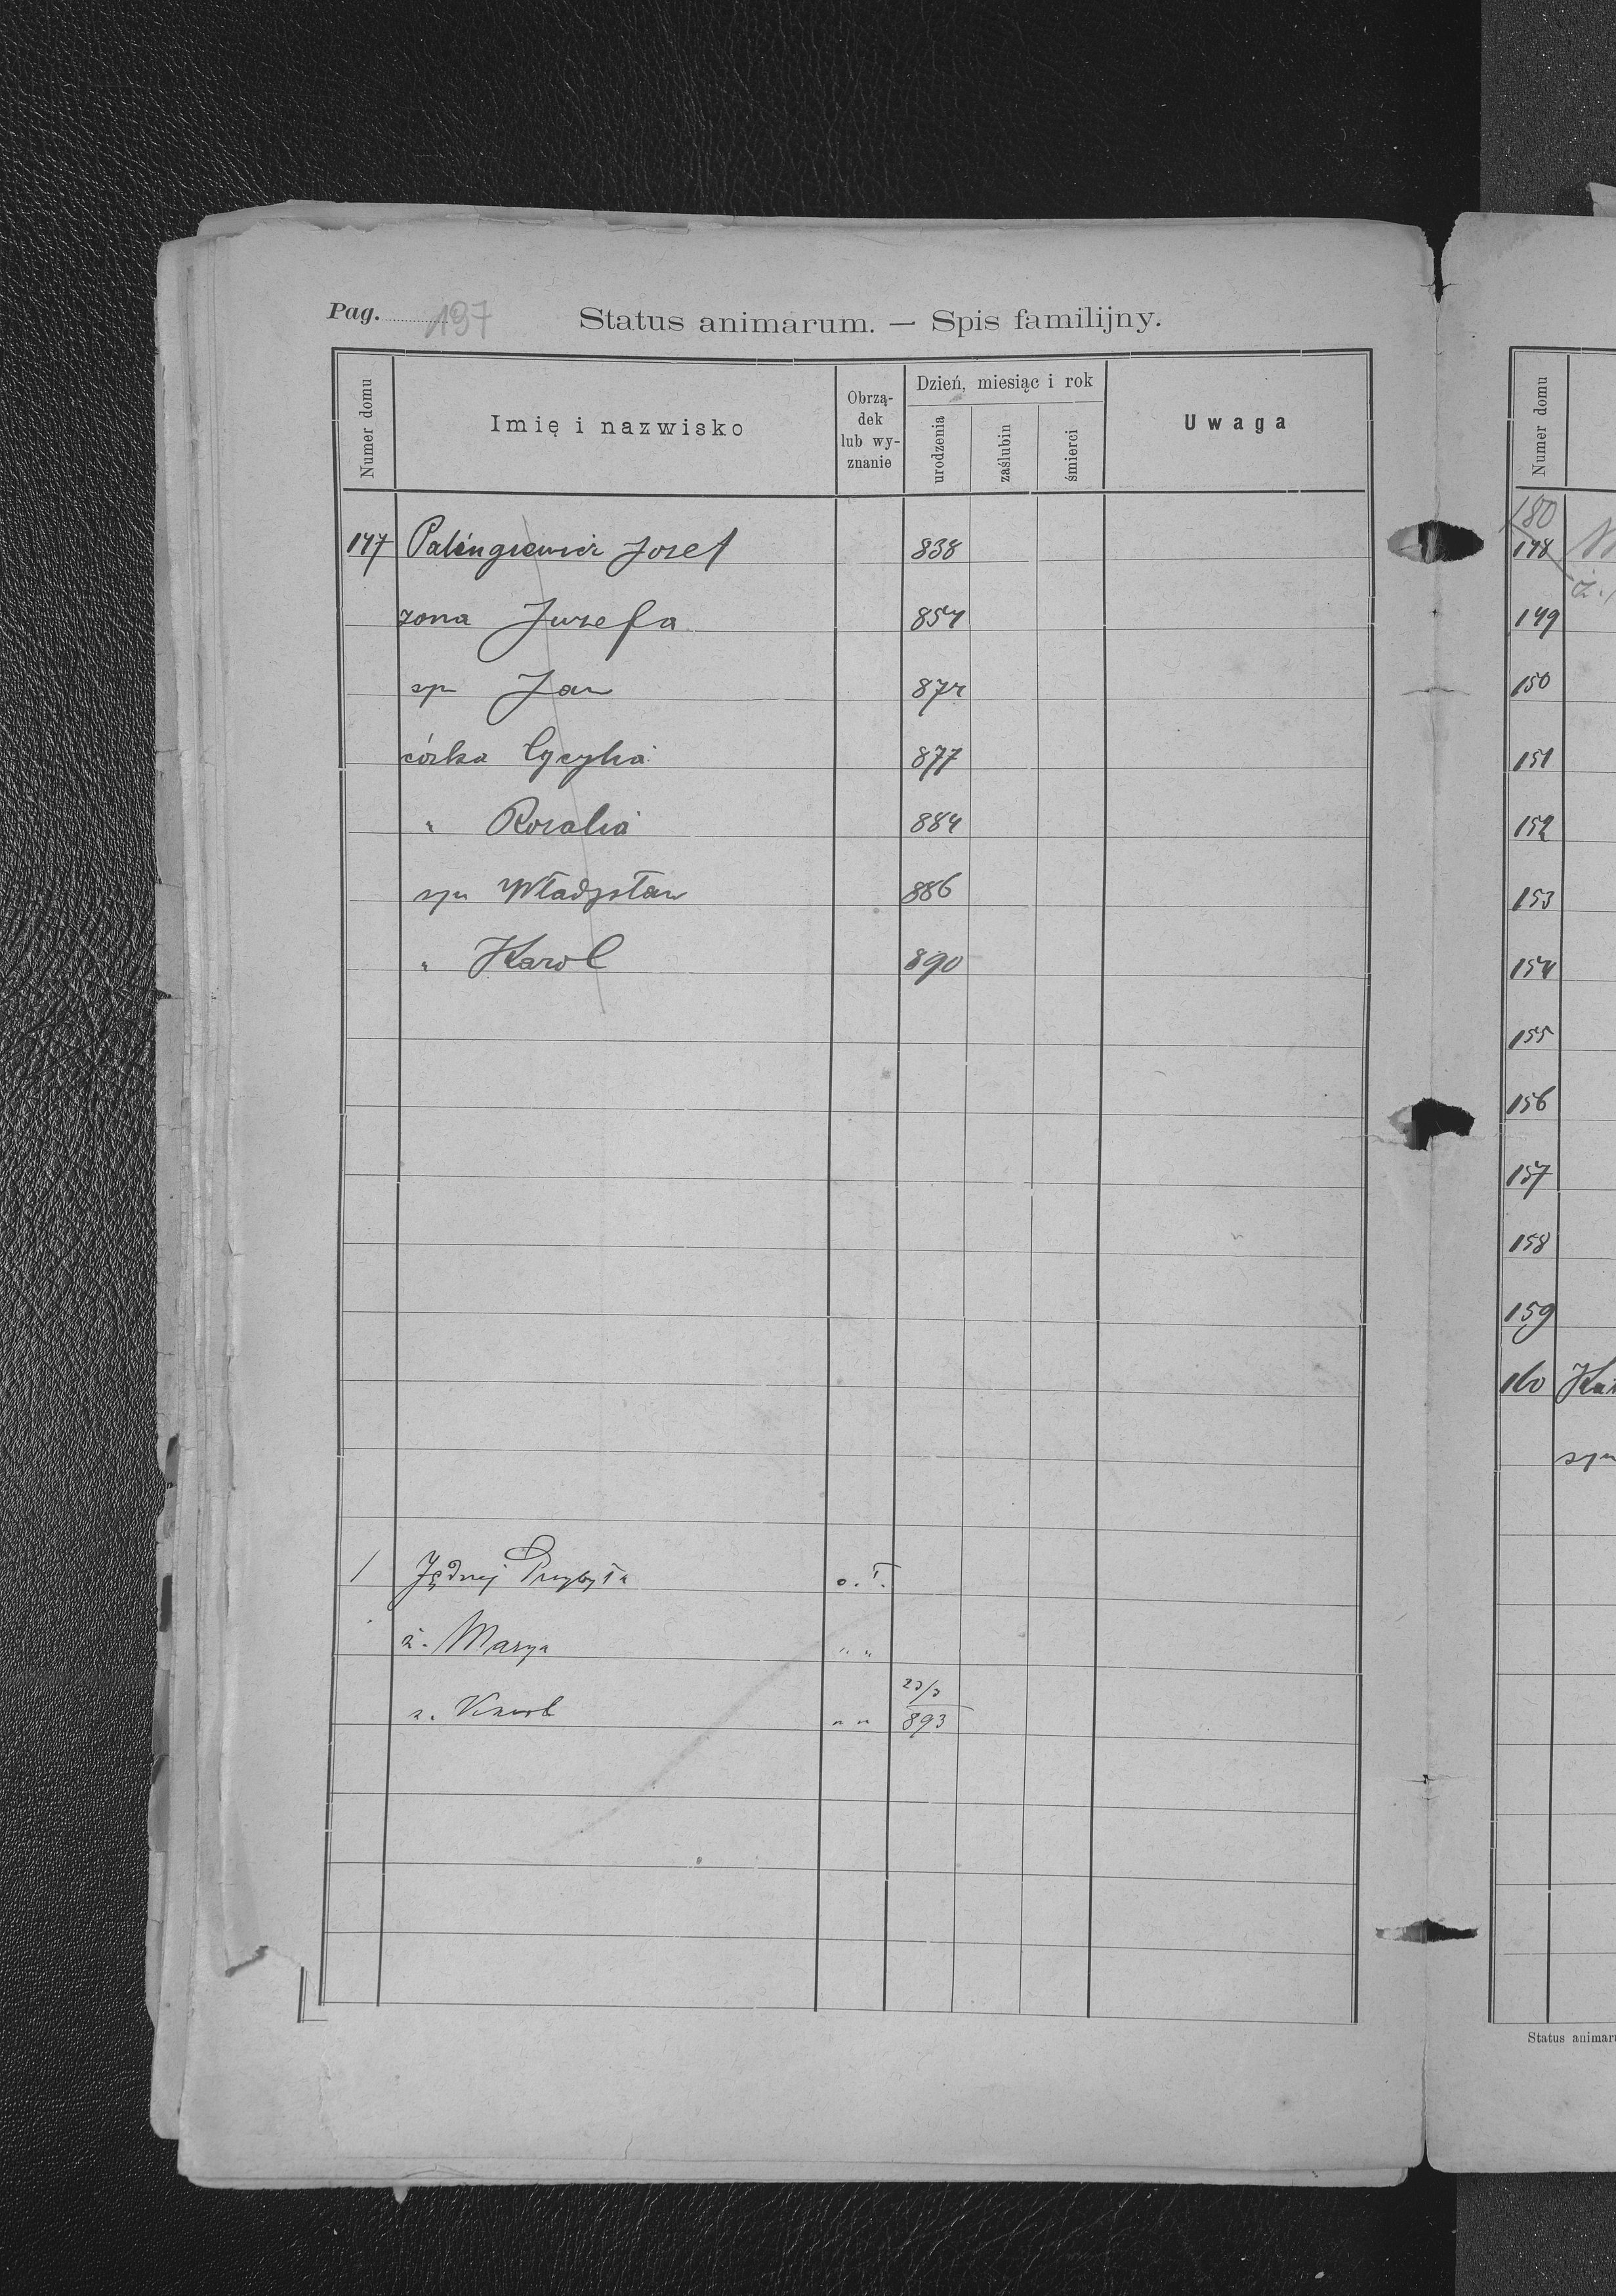 Pag. 197
Status animarum. — Spis familijny.
Numer domu
Imię i nazwisko
Obrzą-
dek
lub wy-
znanie
Dzień, miesiąc i rok
urodzenia
zaślubin
śmierci
Uwaga
147 Josef 838
zona Juzefa 854
syn Jan 874
córka Cycylia 877
" Rozalia 884
syn Władysław 886
" Karol 890
1 Jędrzej Przybyła o. ł.
ż. Marya " "
s. " " 23/3
893
Numer domu
180
148
149
150
151
152
153
154
155
156
157
158
159
160 Ka
syn
Status animaru